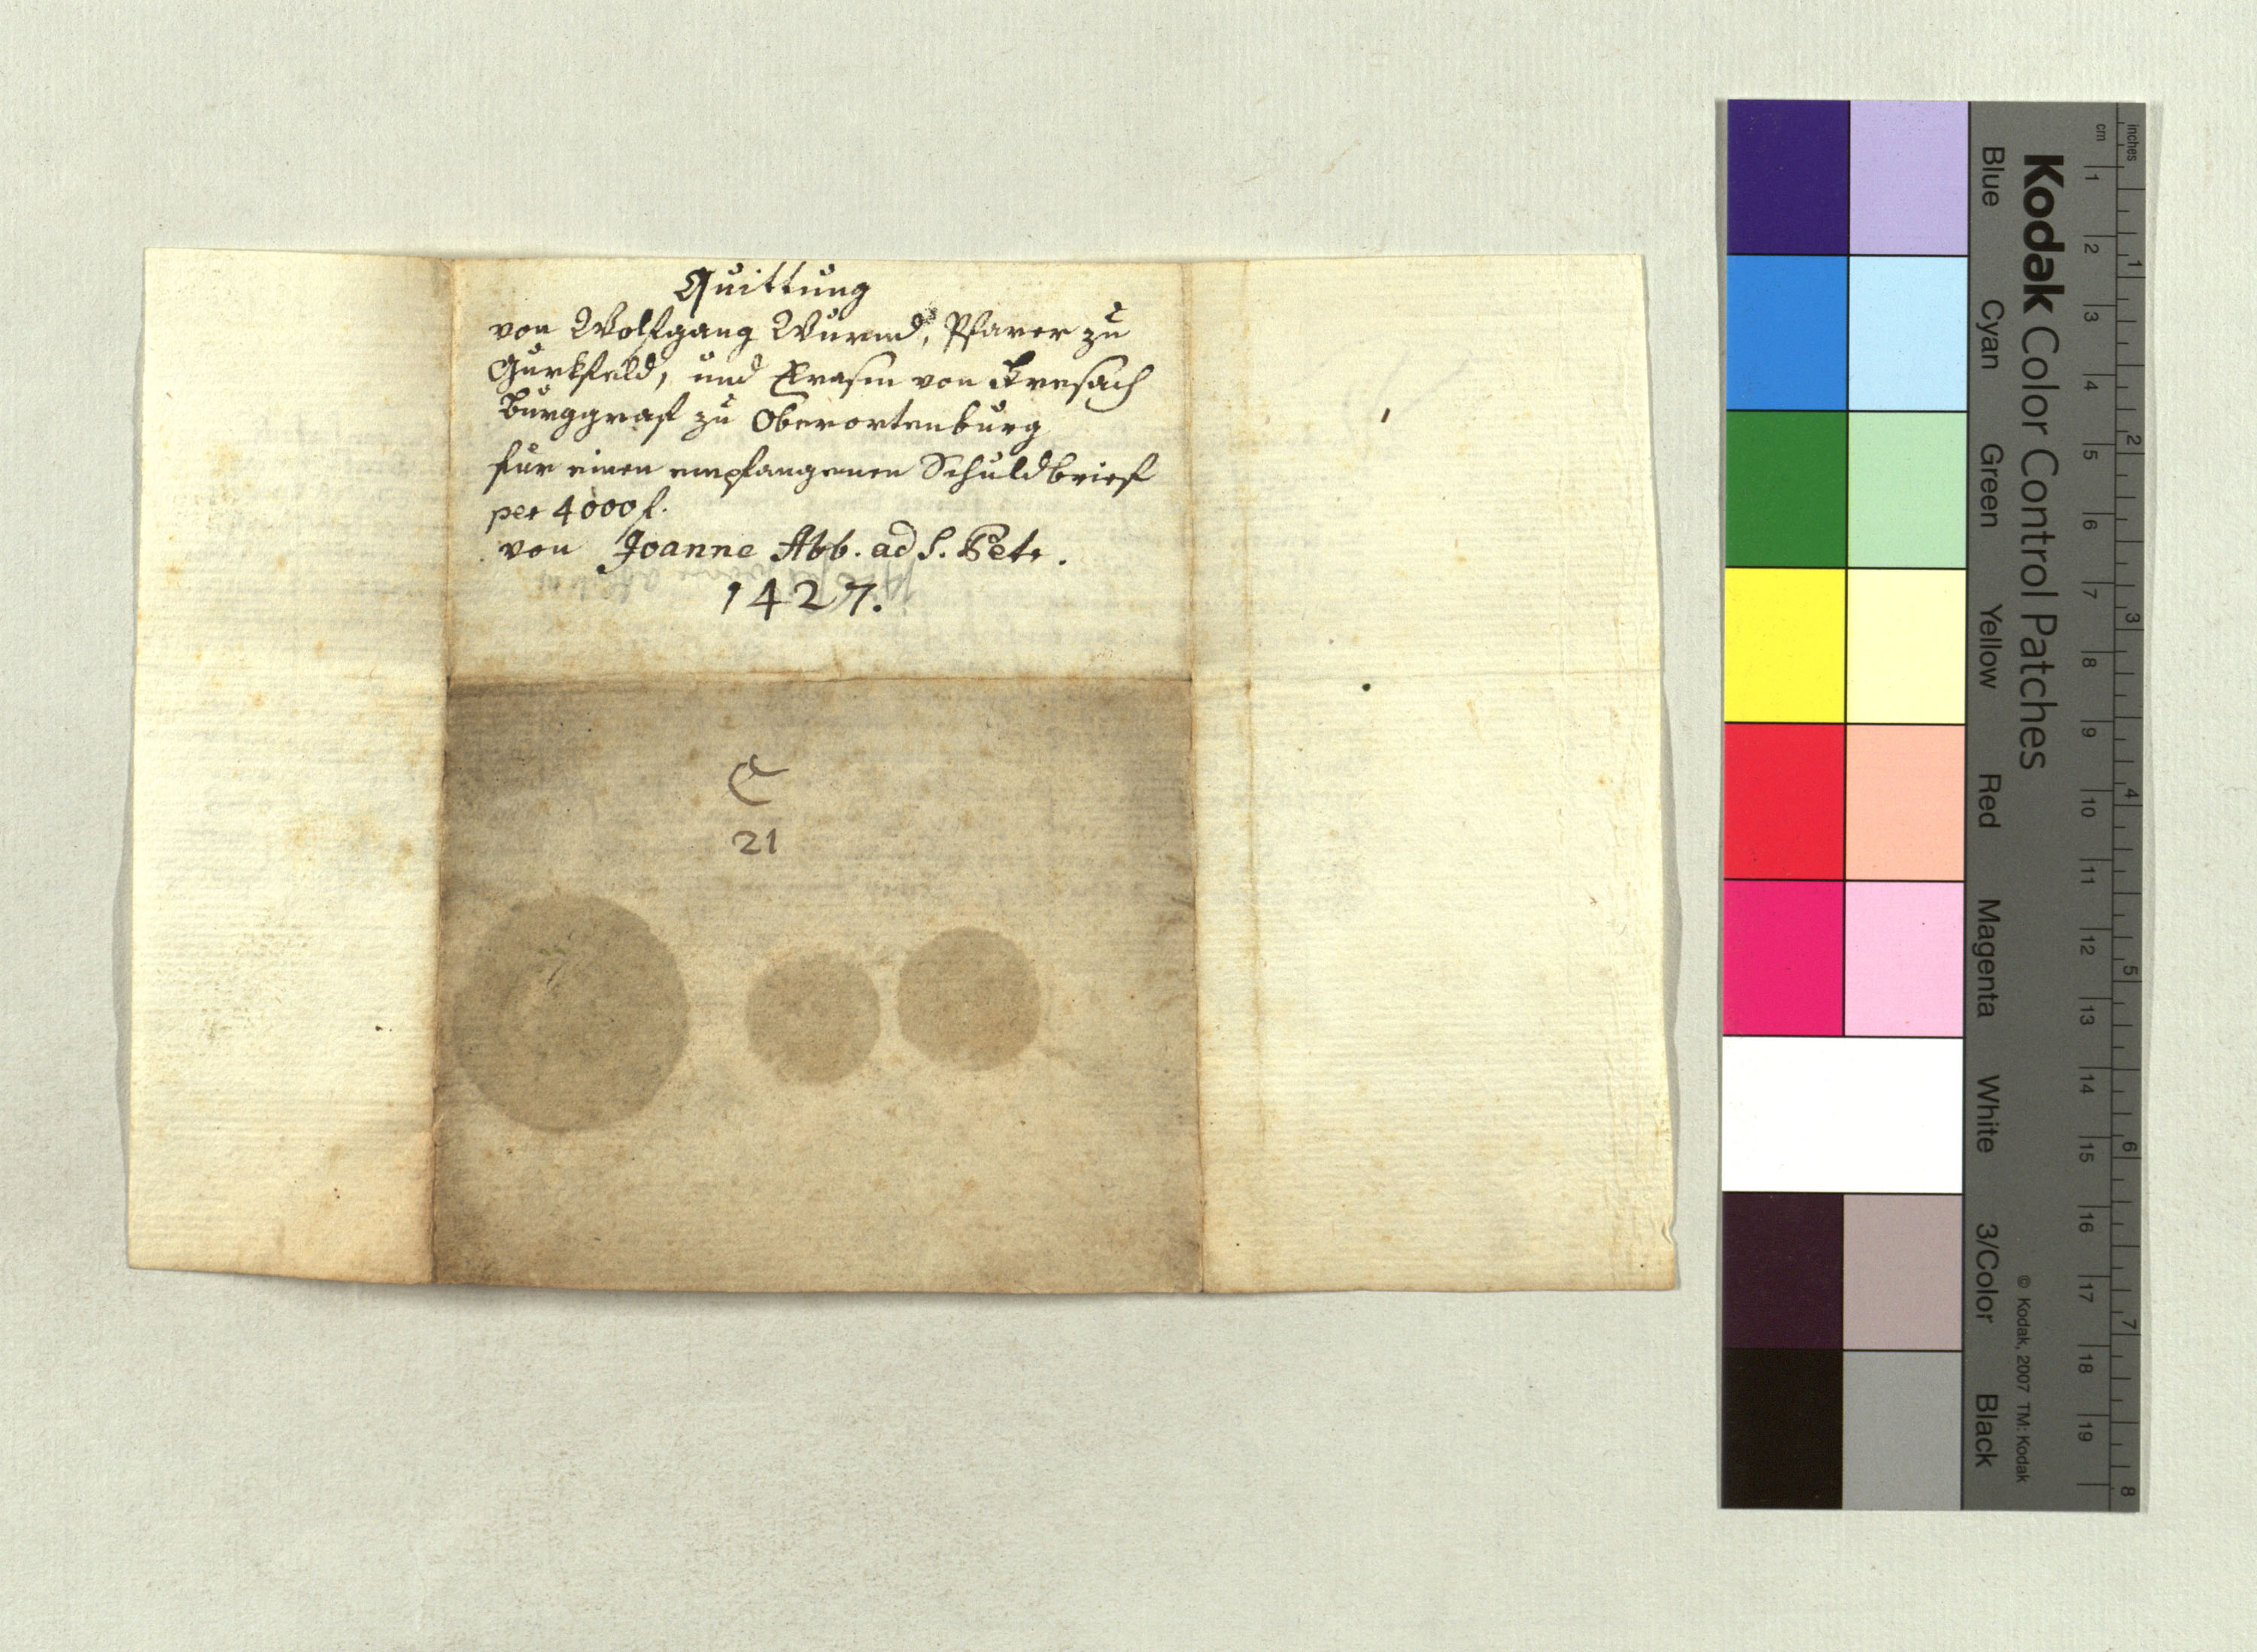 Quittung
von Wolfgang Wurmb, Pfarer zu
Gurkfeld, und Erasm von Kresach
Burggraf zu Oberortenburg
für einen empfangenen Schuldbrief
per 4000 f.
von Joanne Abb. ad S. Petr.
1427.
C
21
Kodak Color Control Patches
Blue Cyan Green Yellow Red Magenta White 3/Color Black
© Kodak, 2007 TM: Kodak
inches 1 2 3 4 5 6 7 8
cm 1 2 3 4 5 6 7 8 9 10 11 12 13 14 15 16 17 18 19